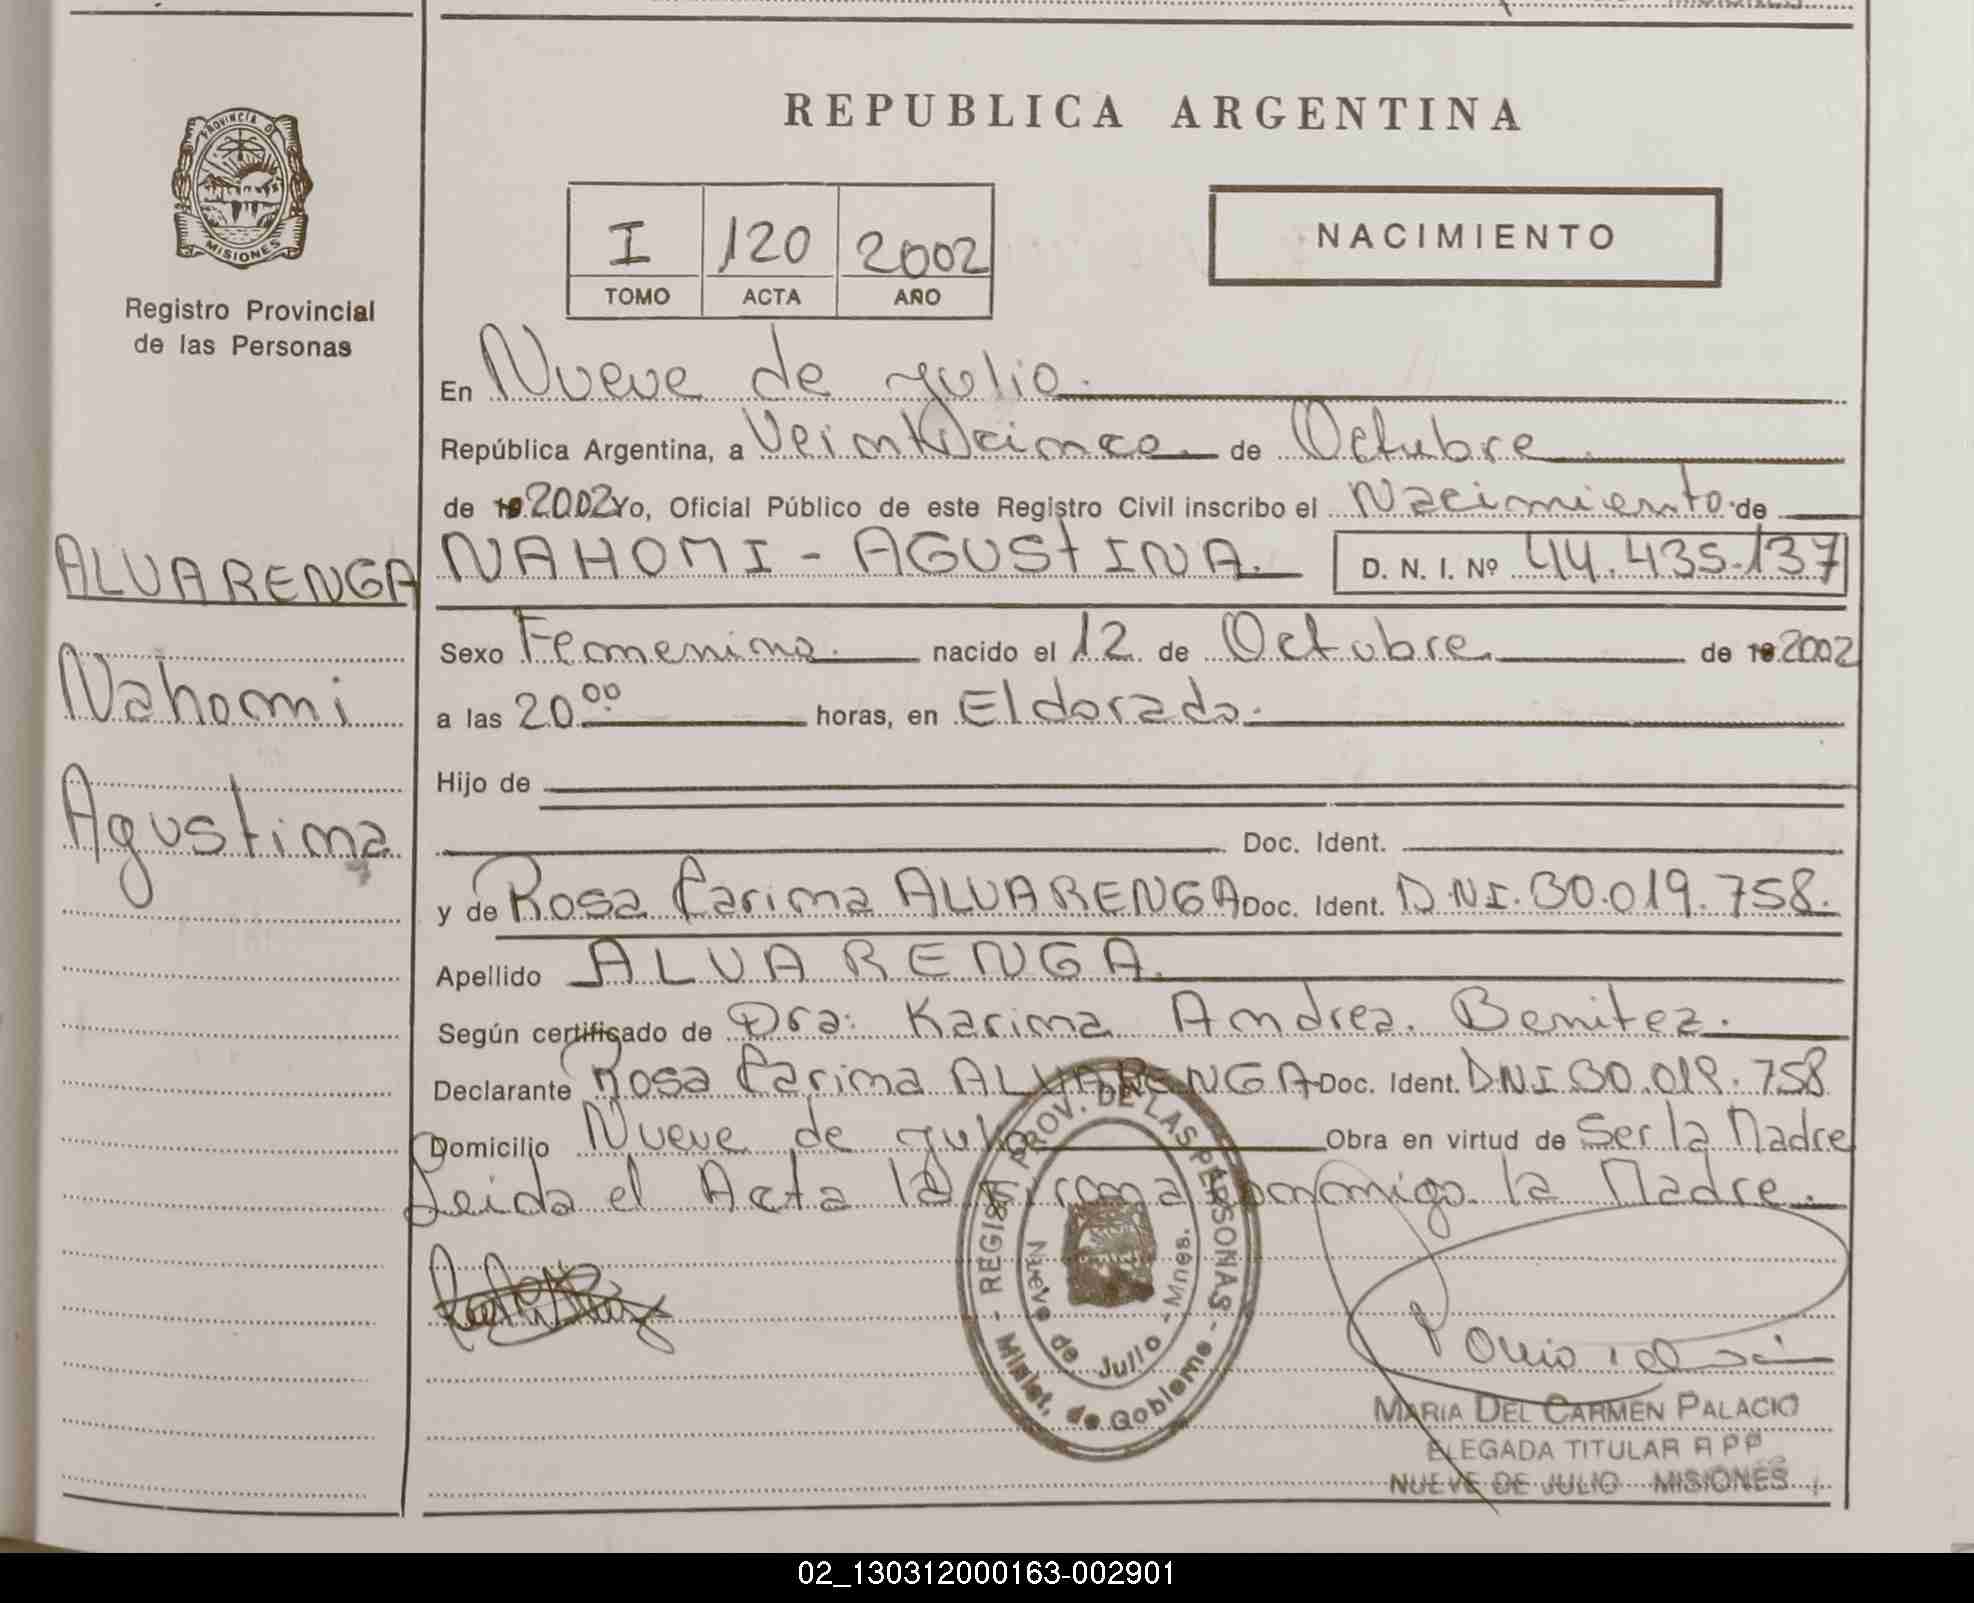 MISIONES
REPUBLICA ARGENTINA
PROVINCIA D
MISIONES
Registro Provincial
de las Personas
I 120 2002
TOMO ACTA AÑO
NACIMIENTO
En Nueve de Julio.
República Argentina, a Veinticinco. de Octubre.
de 19 2002 Yo, Oficial Público de este Registro Civil inscribo el Nacimiento de
ALVARENGA
Nahomi
Agustina
NAHOMI - AGUSTINA. D. N. I. Nº 44.435.137
Sexo Femenino. nacido el 12 de Octubre. de 19 2002
a las 20⁰⁰ horas, en Eldorado.
Hijo de
Doc. Ident.
y de Rosa Carina ALVARENGA Doc. Ident. D.N.I. 30.019.758.
Apellido ALVARENGA.
Según certificado de Dra: Karina Andrea Benitez.
Declarante Rosa Carina ALVARENGA Doc. Ident. DNI 30.019.758
Domicilio Nueve de Julio Obra en virtud de Ser la Madre
Leida el Acta la firma conmigo la Madre.
- REGIST. PROV. DE LAS PERSONAS -
Minist. de Gobierno
Nueve de Julio - Mnes.
MARIA DEL CARMEN PALACIO
ELEGADA TITULAR R P P
NUEVE DE JULIO MISIONES
02_130312000163-002901